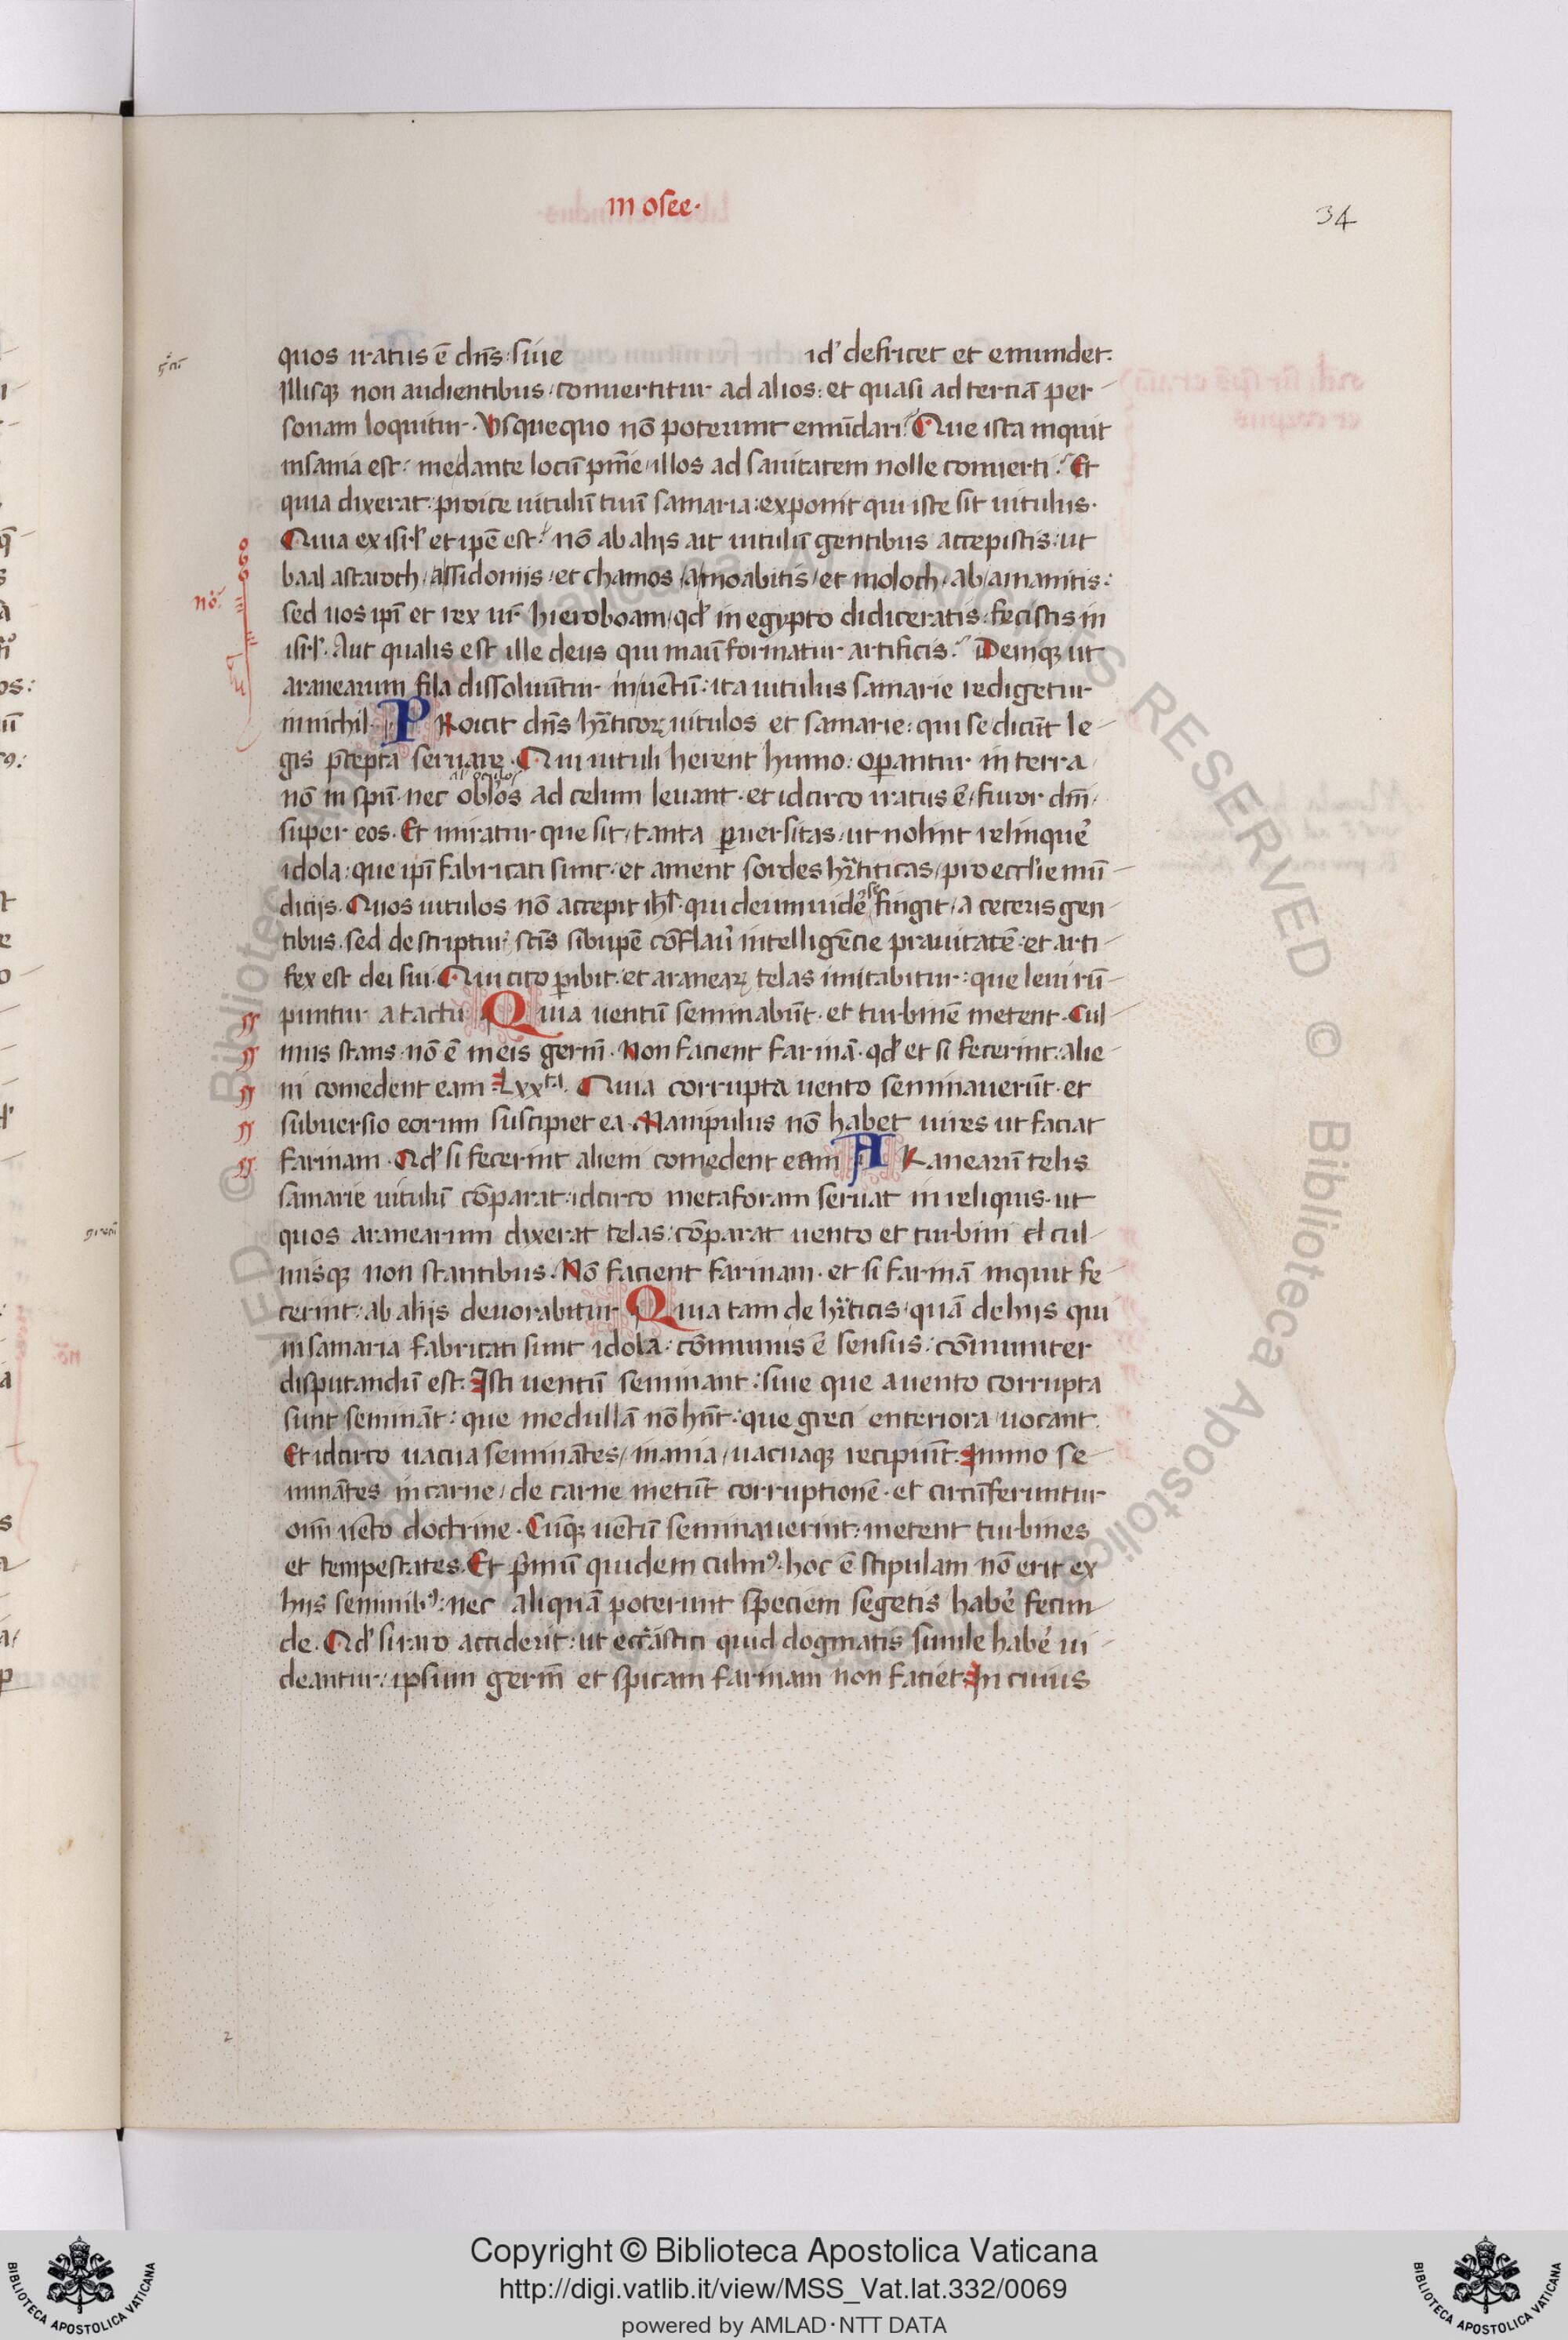 in osee·
34
quos iratus ē dn̄s: siue id' defricet et emundet.
Illisqꝫ non audientibus: conuertitur ad alios: et quasi ad terciā per-
sonam loquitur. Vsquequo nō poterunt emūdari? Que ista inquit
insania est: me dante locū pn̄ie/ illos ad sanitatem nolle conuerti? Et
quia dixerat: proice uitulū tuū samaria: exponit qui iste sit uitulus.
Quia ex isrl' et ipē est? nō ab alijs ait uitulū gentibus accepistis: ut
baal astaroth/ assidoniis/ et chamos/ a moabitis/ et moloch/ ab amanitis:
nō.
sed uos ipī et rex ur̄ hieroboam/ qd' in egypto didiceratis: fecistis in
isrl'. Aut qualis est ille deus qui manū formatur artificis? Deinqꝫ ut
aranearum fila dissoluūtur in uētū: ita uitulus samarie redigetur
in nichil. PRoicit dn̄s hr̄ticoꝝ uitulos et samarie: qui se dicūt le-
gis p̄cepta seruare. Qui uituli herent humo: operantur in terra/
nō in spū. nec obl'os ad celum leuant. et idcirco iratus ē/ furor dn̄i/
super eos. Et miratur que sit/ tanta ꝑuersitas/ ut nolint relinque᷑
idola: que ipī fabricati sunt: et ament sordes hr̄iticas/ pro eccl'ie mū-
dicijs. Quos uitulos nō accepit ihl'. qui deum uide᷑ se fingit/ a ceteris gen-
tibus. sed de scripturis scīs sibi ipē cōflauit intelligēcie prauitatē: et arti-
fex est dei sui. Qui cito ꝑibit: et araneaꝝ telas imitabitur: que leui rū-
puntur a tactu. Quia uentū seminabūt. et turbinē metent. Cul-
mus stans. nō ē in eis germ̄. Non facient farinā. qd' et si fecerint: alie-
ni comedent eam. Lxxta. Quia corrupta uento seminauerūt. et
subuersio eorum suscipiet ea. Manipulus nō habet uires ut faciat
farinam. Qd' si fecerint alieni comedent eam. ARanearū telis
samarie uitulū cōparat. idcirco metaforam seruat in reliquis. ut
quos aranearum dixerat telas: cōparat uento et turbini et cul-
misqꝫ non stantibus. Nō facient farinam. et si farinā inquit fe-
cerint: ab alijs deuorabitur. Quia tam de hr̄iticis/ quā de hijs qui
in samaria fabricati sunt idola: cōmunis ē sensus: cōmuniter
disputandū est. Isti uentū seminant: siue que a uento corrupta
sunt semināt: que medullā nō hn̄t: que greci enteriora/ uocant.
Et idcirco uacua seminātes/ inania/ uacuaqꝫ recipiūt. Immo se-
minātes in carne/ de carne metūt corruptionē. et circūferuntur
om̄i uēto doctrine. Cūqꝫ uētū seminauerint: metent turbines
et tempestates. Et p̄mū quidem culmꝰ: hoc ē stipulam nō erit ex
hijs seminibꝰ: nec aliquā poterunt speciem segetis habe᷑ fecun-
de. Qd' si raro acciderit: ut eccl'astici quid dogmatis simile habe᷑ ui-
deantur/ ipsum germ̄ et spicam farinam non faciet. In cuius
2
Copyright © Biblioteca Apostolica Vaticana
http://digi.vatlib.it/view/MSS_Vat.lat.332/0069
powered by AMLAD·NTT DATA